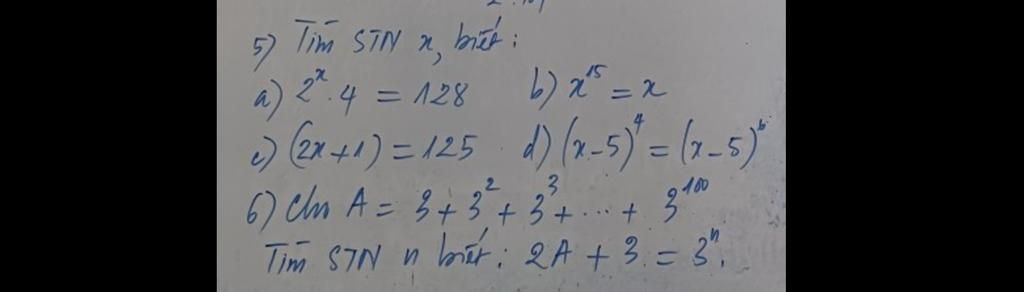 5) Tìm STN x, biết:
a) 2ˣ.4 = 128 b) x¹⁵ = x
c) (2x+1) = 125 d) (x-5)⁴ = (x-5)⁶
6) Cho A = 3 + 3² + 3³ + ... + 3¹⁰⁰
Tìm STN n biết: 2A + 3 = 3ⁿ.